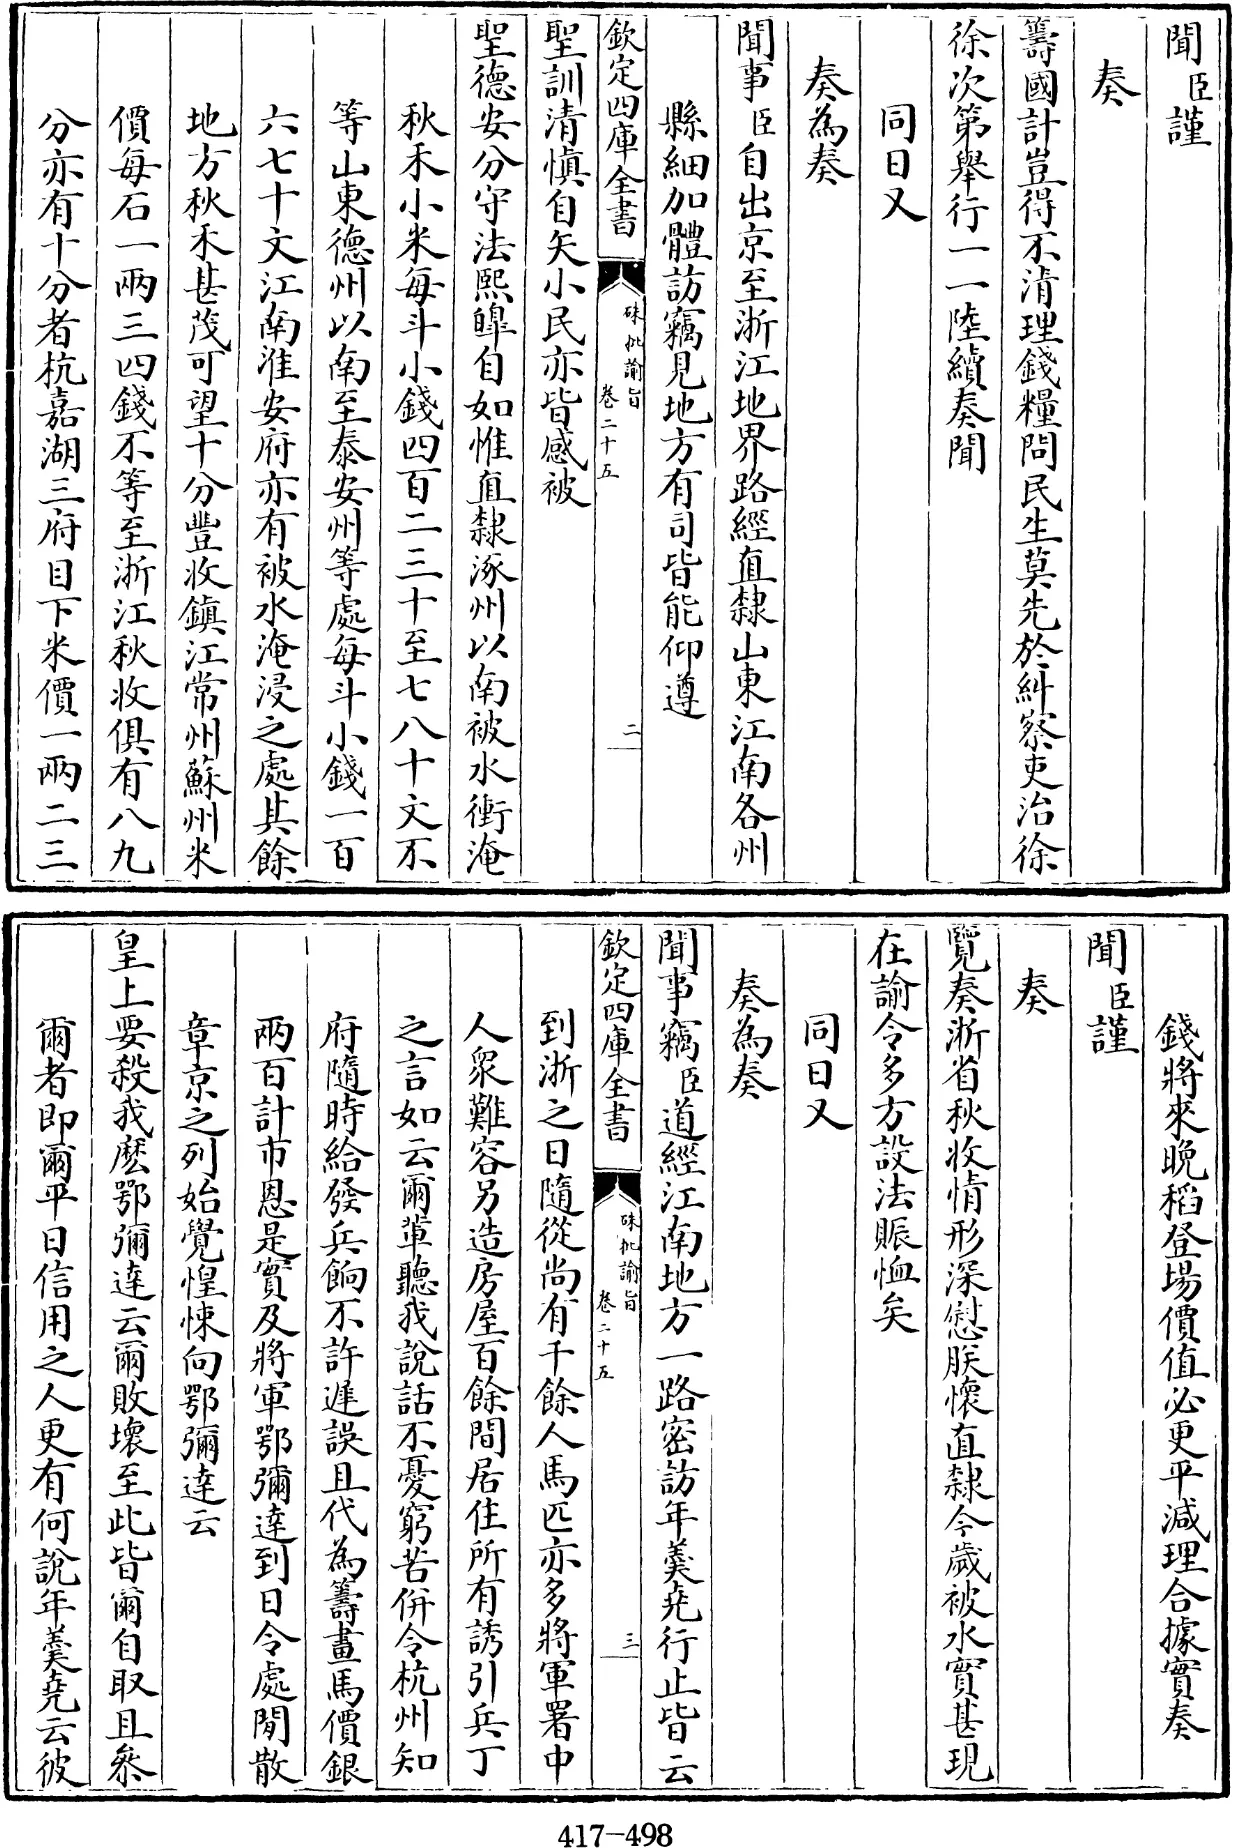 聞臣謹
奏
籌國計豈得不清理錢糧問民生莫先於糾察吏治徐
徐次第舉行一一陸續奏聞
同日又
奏為奏
聞事臣自出京至浙江地界路經直隸山東江南各州
縣細加體訪竊見地方有司皆能仰遵
欽定四庫全書
硃批諭旨
卷二十五
二
聖訓清慎自矢小民亦皆感被
聖德安分守法熙皥自如惟直隸涿州以南被水衝淹
秋禾小米每斗小錢四百二三十至七八十文不
等山東德州以南至泰安州等處每斗小錢一百
六七十文江南淮安府亦有被水淹浸之處其餘
地方秋禾甚茂可望十分豐收鎮江常州蘇州米
價每石一兩三四錢不等至浙江秋收俱有八九
分亦有十分者杭嘉湖三府目下米價一兩二三
錢將來晚稻登場價值必更平減理合據實奏
聞臣謹
奏
覽奏浙省秋收情形深慰朕懷直隸今歲被水實甚現
在諭令多方設法賑恤矣
同日又
奏為奏
聞事竊臣道經江南地方一路密訪年羹堯行止皆云
欽定四庫全書
硃批諭旨
卷二十五
三
到浙之日隨從尚有千餘人馬匹亦多將軍署中
人衆難容另造房屋百餘間居住所有誘引兵丁
之言如云爾軰聽我說話不憂窮苦併令杭州知
府隨時給發兵餉不許遲誤且代為籌畫馬價銀
兩百計市恩是實及將軍鄂彌達到日令處閒散
章京之列始覺惶悚向鄂彌達云
皇上要殺我麽鄂彌達云爾敗壞至此皆爾自取且叅
爾者即爾平日信用之人更有何說年羹堯云彼
417-498